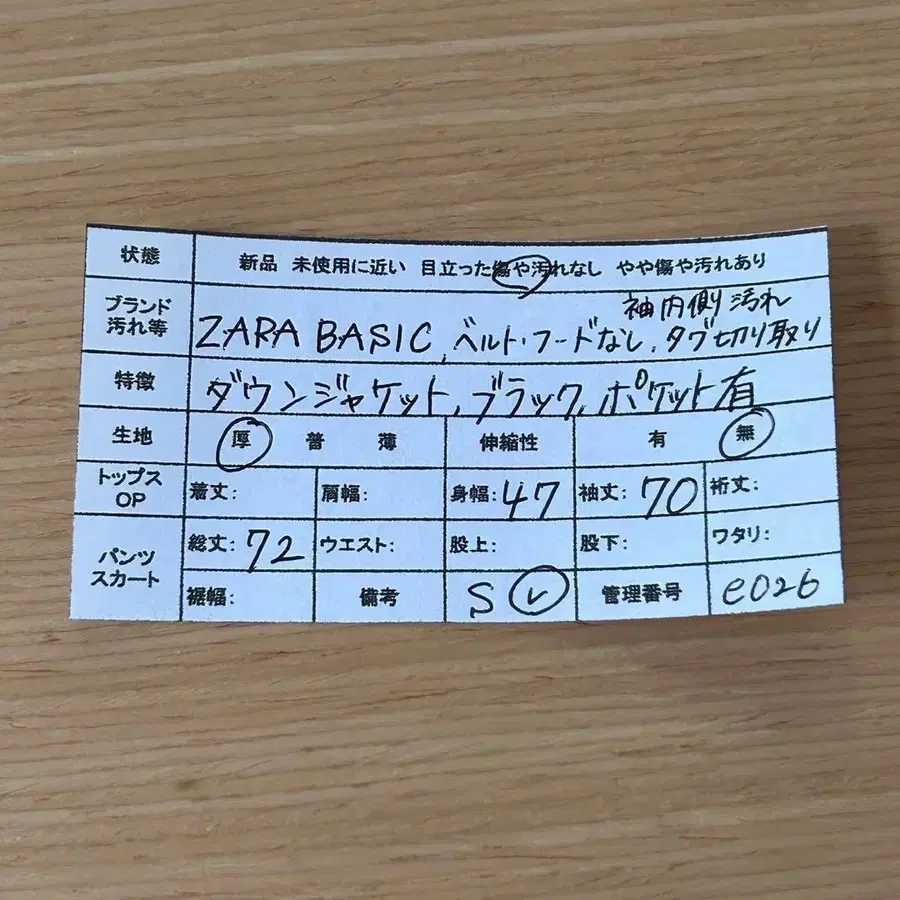 状態 新品 未使用に近い 目立った傷や汚れなし やや傷や汚れあり
ブランド 袖内側汚れ
汚れ等 ZARA BASIC、ベルト・フードなし、タグ切り取り
特徴 ダウンジャケット、ブラック、ポケット有
生地 厚 普 薄 伸縮性 有 無
トップス OP 着丈: 肩幅: 身幅:47 袖丈:70 裄丈:
パンツ 総丈:72 ウエスト: 股上: 股下: ワタリ:
スカート 裾幅: 備考 S レ 管理番号 e026